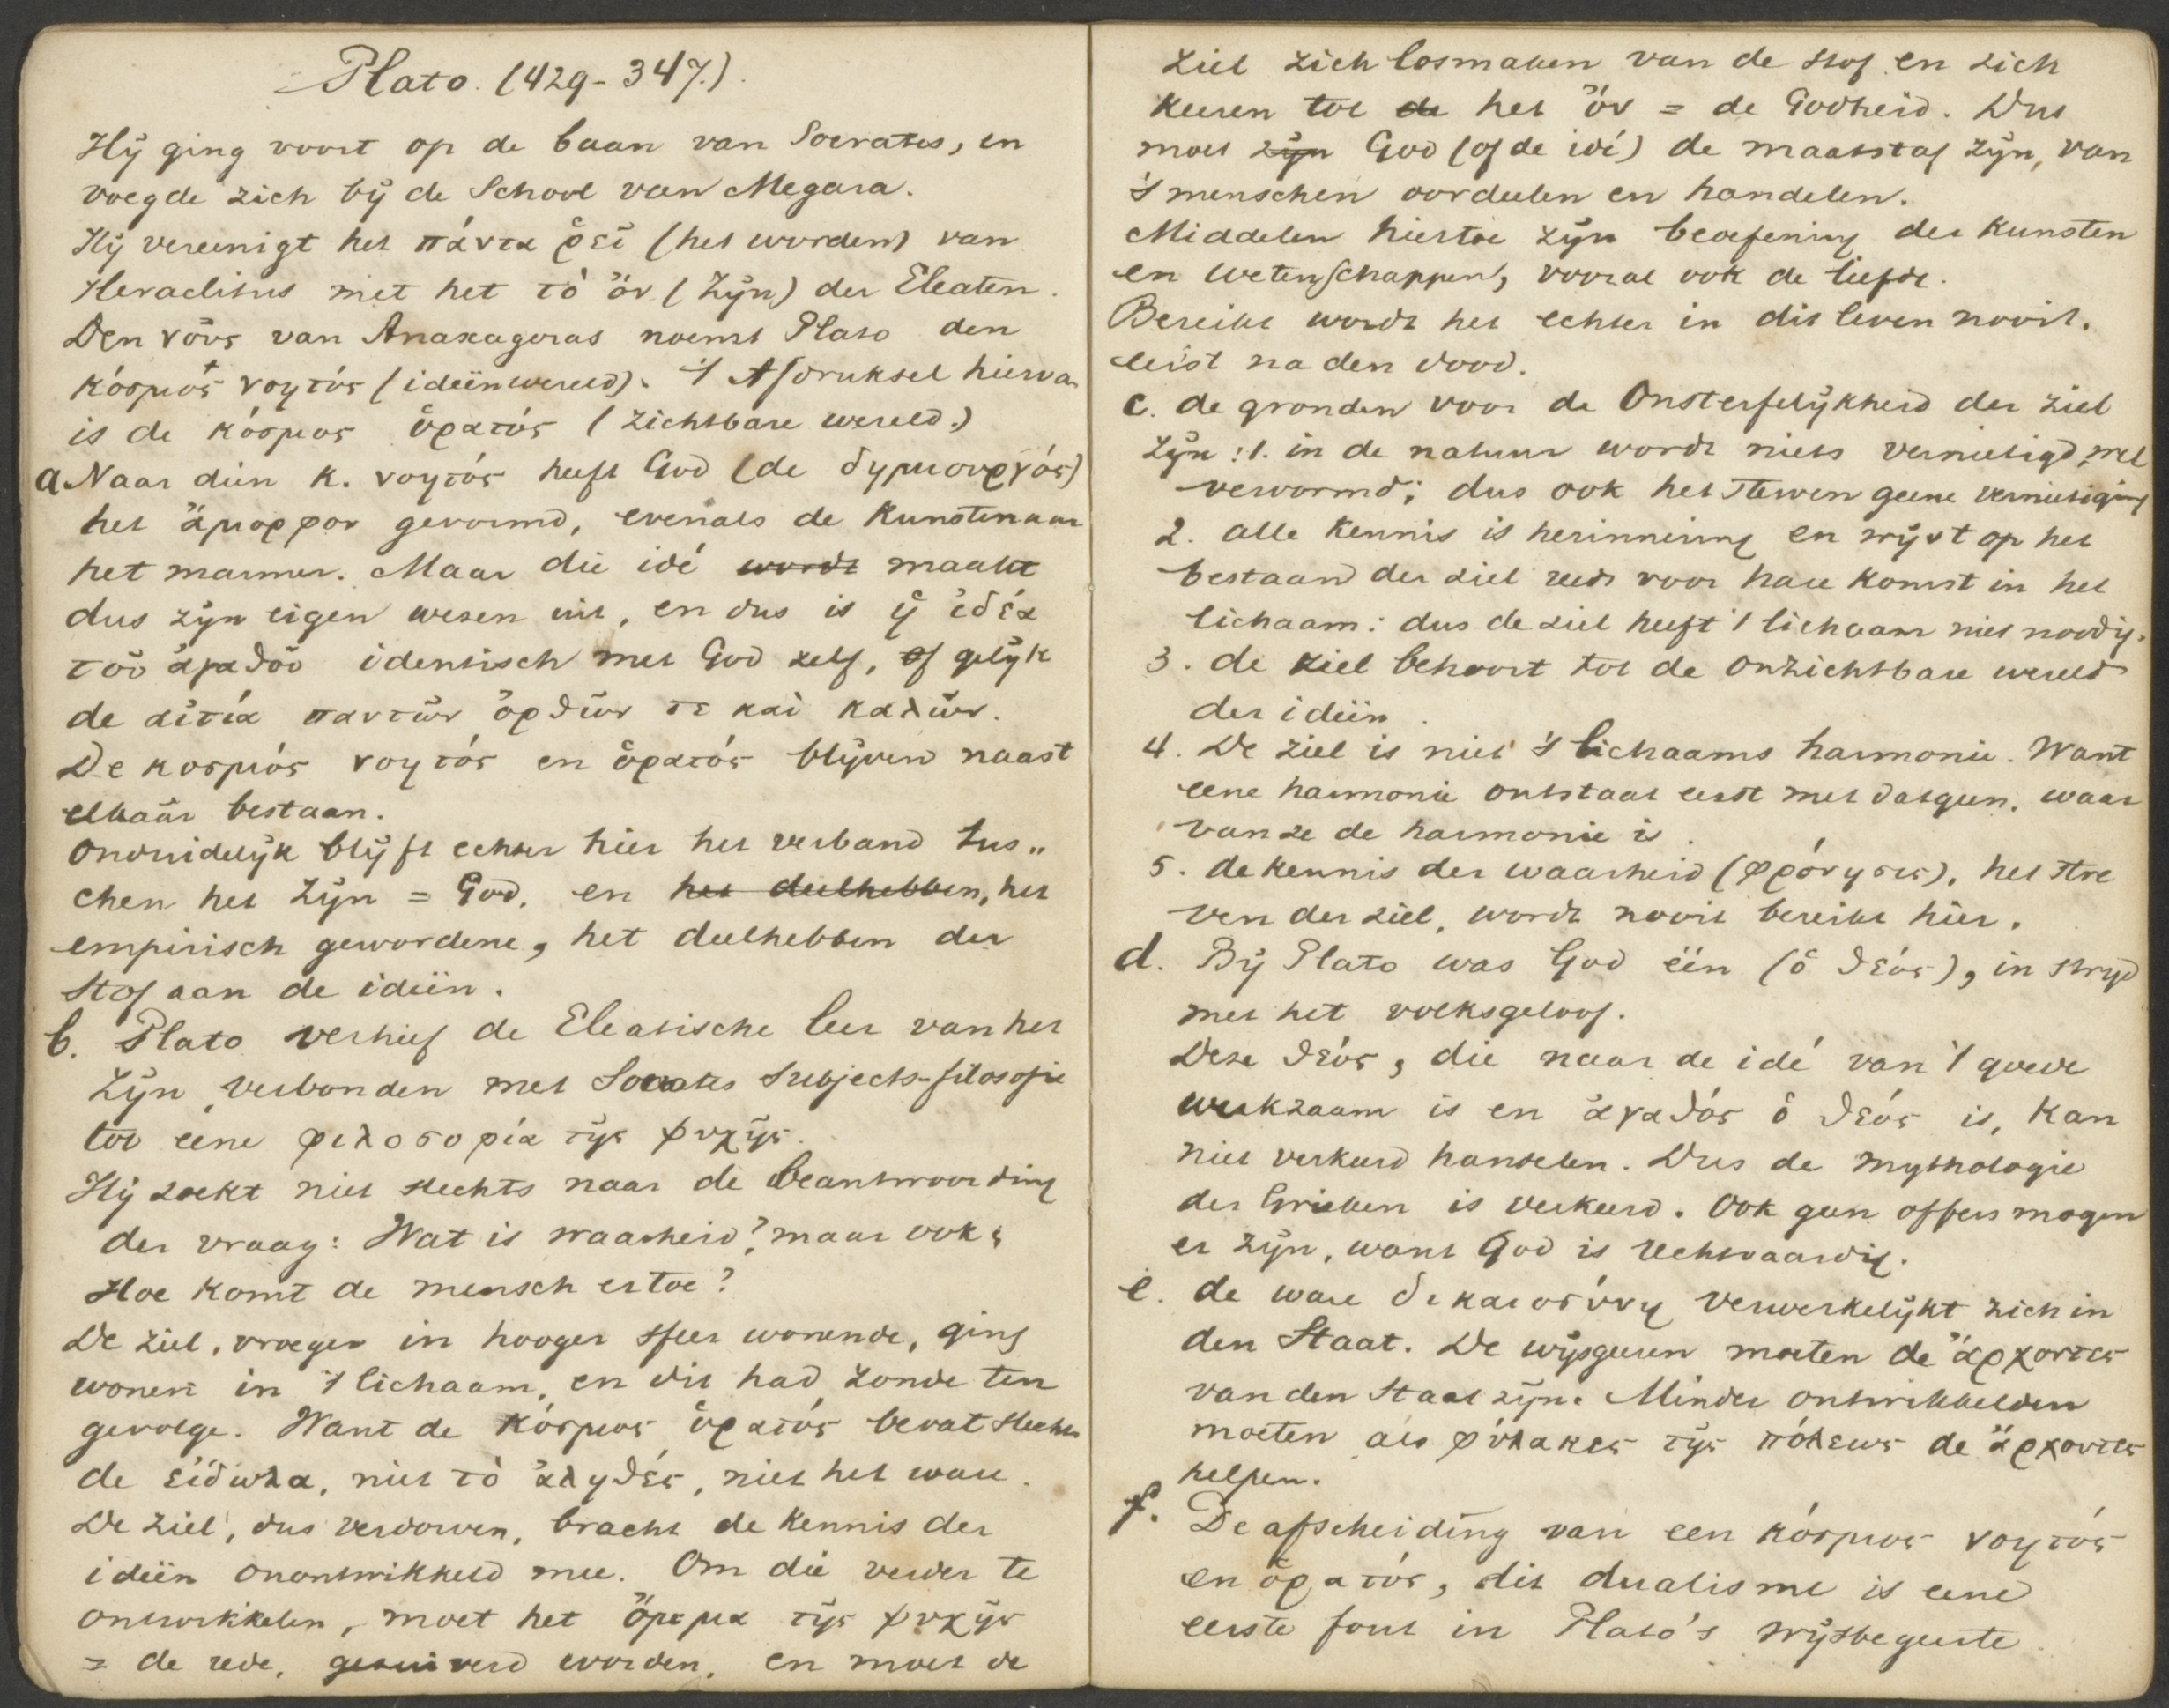 Plato. (429-347.)
Hij ging voort op de baan van Socrates, en
voegde zich bij de School van Megara.
Hij vereenigt het πάντα ῥεῖ (het worden) van
Heraclitus met het τὸ ὄν (Zijn) der Eleaten.
Den νοῦς van Anaxagoras noemt Plato den
κόσμος νοητός (ideënwereld). 't Afdruksel hierva
is de κόσμος ὁρατός (zichtbare wereld.)
a. Naar dien K. νοητός heeft God (de δημιουργός)
het ἄμορφον gevormd, evenals de Kunstenaar
het marmer. Maar die idé wordt maakt
dus zijn eigen wezen uit, en dus is ἡ ἰδέα
τοῦ ἀγαθοῦ identisch met God zelf, of gelijk
de αἰτία παντων ὀρθῶν τε καὶ καλῶν.
De κοσμός νοητός en ὁρατός blijven naast
elkaâr bestaan.
Onduidelijk blijft echter hier het verband tus„
chen het Zijn = God, en het deelhebben, het
empirisch gewordene, het deelhebben der
Stof aan de ideën.
b. Plato verhief de Eleatische leer van het
Zijn, verbonden met Socrates Subjects-filosofie
tot eene φιλοσοφία τῆς ψυχῆς.
Hij zoekt niet slechts naar de beantwoording
der vraag: Wat is waarheid? maar ook:
Hoe komt de mensch er toe?
De ziel, vroeger in hooger sfeer wonende, ging
wonen in 't lichaam, en dit had zonde ten
gevolge. Want de κόσμος ὁρατός bevat slechts
de εἴδωλα, niet τὸ ἀληθές, niet het ware.
De ziel, dus verdorven, bracht de kennis der
ideën onontwikkeld mee. Om die verder te
ontwikkelen, moet het ὄμμα τῆς ψυχῆς
= de rede, gezuiverd worden, en moet de
ziel zich losmaken van de stof en zich
keeren tot de het ὄν = de Godheid. Dus
moet zijn God (of de idé) de maatstaf zijn, van
's menschen oordeelen en handelen.
Middelen hiertoe zijn beoefening der Kunsten
en wetenschappen, vooral ook de liefde.
Bereikt wordt het echter in dit leven nooit.
eerst na den dood.
c. de gronden voor de Onsterfelijkheid der ziel
zijn: 1. in de natuur wordt niets vernietigd, wel
vervormd; dus ook het sterven geene vernietiging
2. alle kennis is herinnering en wijst op het
bestaan der ziel reeds voor hare komst in het
lichaam: dus de ziel heeft 't lichaam niet noodig.
3. de ziel behoort tot de onzichtbare wereld
der ideën.
4. De ziel is niet 's lichaams harmonie. Want
eene harmonie ontstaat eerst met datgeen, waar
van ze de harmonie is.
5. de kennis der waarheid (φρόνησις), het stre
ven der ziel, wordt nooit bereikt hier.
d. Bij Plato was God één (ὁ θεός), in strijd
met het volksgeloof.
Deze θεός, die naar de idé van 't goede
werkzaam is en ἀγαθός ὁ θεός is, kan
niet verkeerd handelen. Dus de mythologie
der Grieken is verkeerd. Ook geen offers mogen
er zijn, want God is rechtvaardig.
e. de ware δικαιοσύνη verwerkelijkt zich in
den Staat. De wijsgeeren moeten de ἄρχοντες
van den Staat zijn. Minder ontwikkelden
moeten als φύλακες τῆς πόλεως de ἄρχοντες
helpen.
f. De afscheiding van een κόσμος νοητός
en ὁρατός, dit dualisme is eene
eerste fout in Plato's wijsbegeerte.